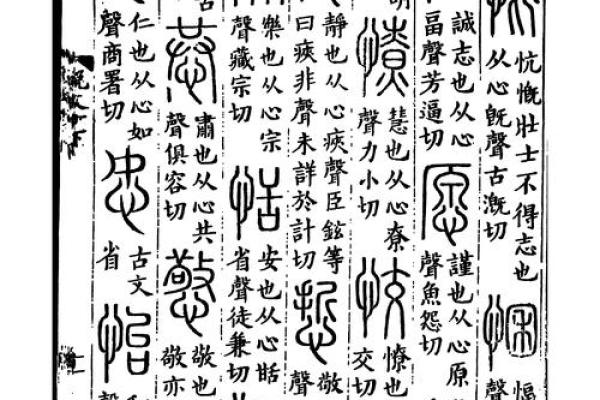 忼慨壯士不得志也
从心旣聲古漑切
悃
愊
聲
誠志也从心
畐聲芳逼切
愿
謹也从心原
聲魚怨切
憭
慧也从心尞
聲力小切
恔
憭也
交切
静也从心疾聲臣鉉等
曰疾非聲未詳於計切
悊
敬
聲
樂也从心宗
聲藏宗切
恬
安也从心甛
省聲徒兼切
恭
肅也从心共
聲俱容切
憼
敬也
敬亦
仁也从心如
聲商署切
㣽
古文
省
怡
和
聲